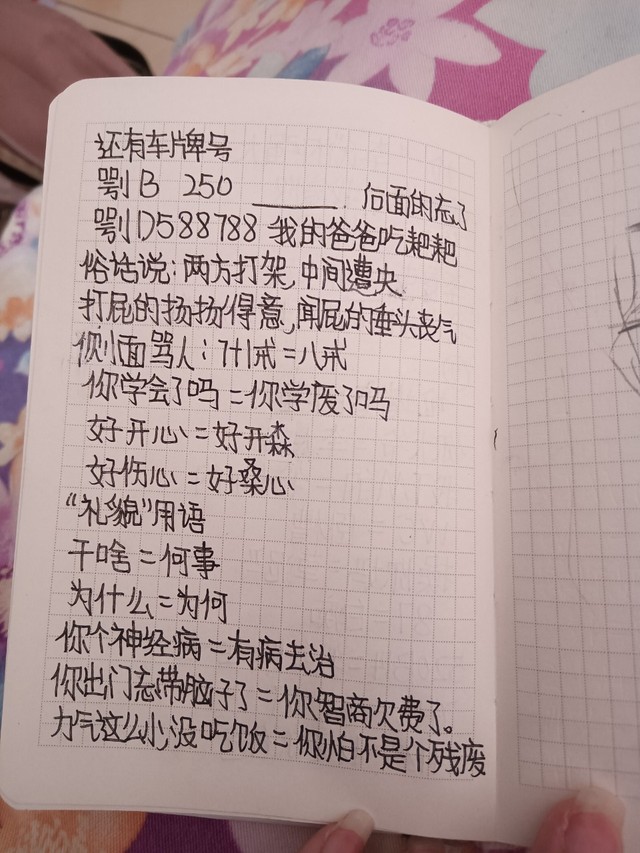 还有车牌号
鄂B 250 ______ 后面的忘了
鄂D588788 我的爸爸吃耙耙
俗话说:两方打架,中间遭央
打屁的扬扬得意,闻屁的垂头丧气
侧面骂人:7+1戒=八戒
你学会了吗=你学废了吗
好开心=好开森
好伤心=好桑心
“礼貌”用语
干啥=何事
为什么=为何
你个神经病=有病去治
你出门忘带脑子了=你智商欠费了。
力气这么小,没吃饭=你怕不是个残废